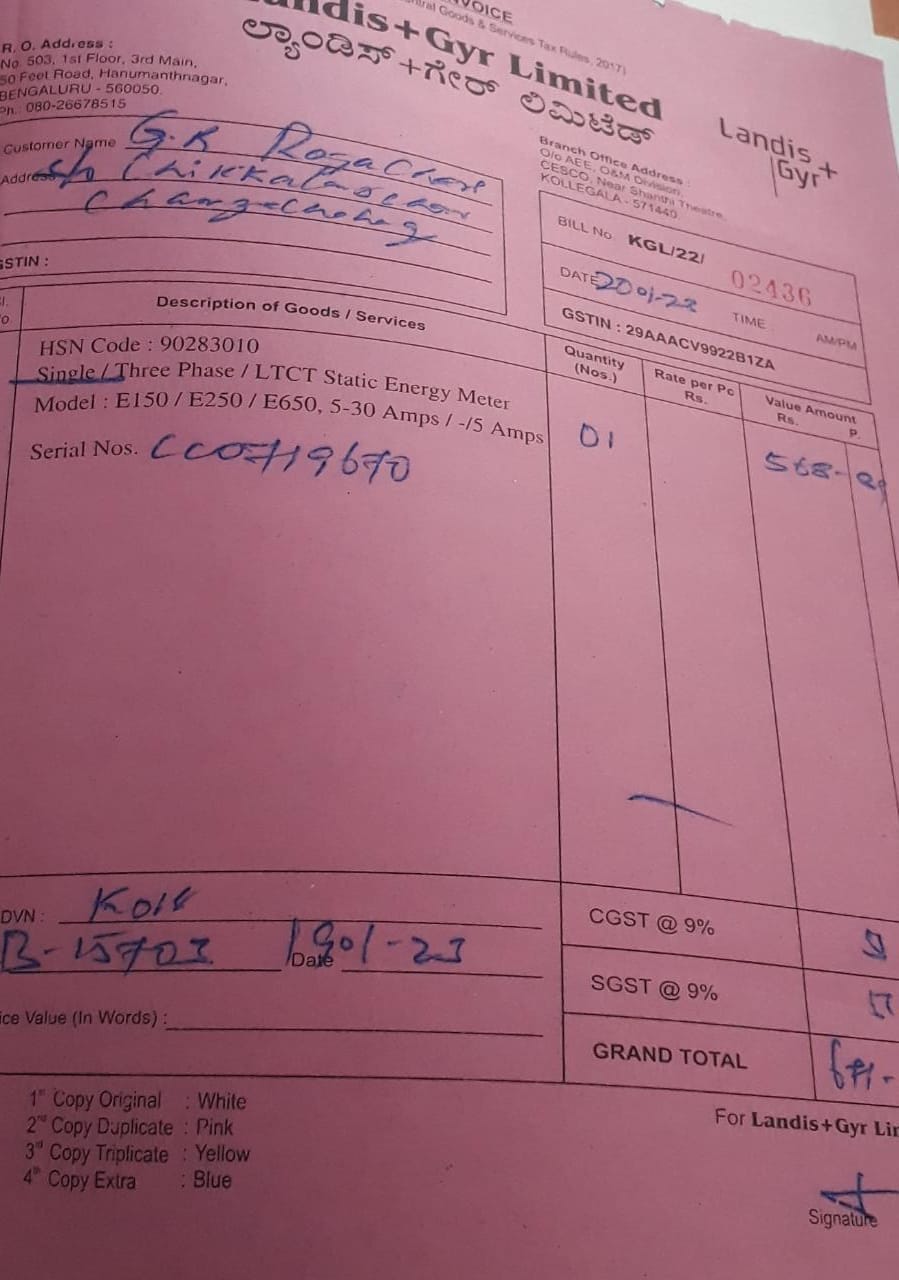 VOICE
ntral Goods & Services Tax Rules, 2017)
andis+Gyr Limited
ಲ್ಯಾಂಡಿಸ್+ಗೇರ್ ಲಿಮಿಟೆಡ್
Landis+
Gyr+
R. O. Address :
No. 503, 1st Floor, 3rd Main,
50 Feet Road, Hanumanthnagar,
BENGALURU - 560050.
Ph.: 080-26678515
Branch Office Address :
O/o AEE, O&M Division,
CESCO, Near Shanthi Theatre,
KOLLEGALA - 571440
Customer Name G.R
Address s/o
GSTIN :
BILL No. KGL/22/ 02436
DATE 20-01-23 TIME AM/PM
GSTIN : 29AAACV9922B1ZA
Sl. No
Description of Goods / Services
Quantity (Nos.)
Rate per Pc Rs.
Value Amount Rs. P.
HSN Code : 90283010
Single / Three Phase / LTCT Static Energy Meter
Model : E150 / E250 / E650, 5-30 Amps / -/5 Amps
01
568-
Serial Nos. CC0719670
DVN :
B-15703 Date 19-01-23
CGST @ 9%
SGST @ 9%
ice Value (In Words) :
GRAND TOTAL 671-
1st Copy Original : White
2nd Copy Duplicate : Pink
3rd Copy Triplicate : Yellow
4th Copy Extra : Blue
For Landis+Gyr Lir
Signature